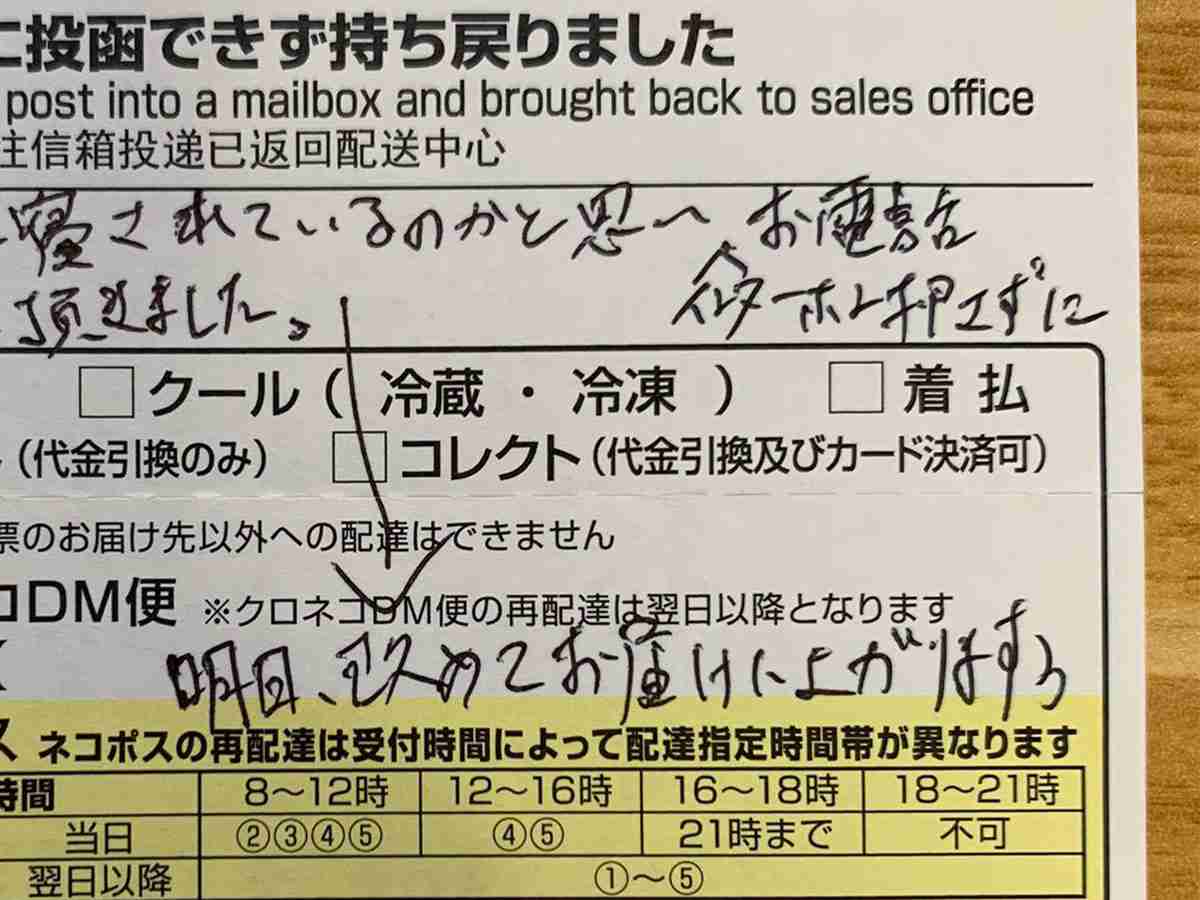 に投函できず持ち戻りました
post into a mailbox and brought back to sales office
注信箱投递已返回配送中心
寝されているのかと思へ お電話
インターホン押さずに
頂きました。
クール（ 冷蔵 ・ 冷凍 ）
着 払
（代金引換のみ）
コレクト（代金引換及びカード決済可）
票のお届け先以外への配達はできません
コDM便 ※クロネコDM便の再配達は翌日以降となります
明日、改めてお届けに上がります
ス ネコポスの再配達は受付時間によって配達指定時間帯が異なります
時間 8〜12時 12〜16時 16〜18時 18〜21時
当日 ②③④⑤ ④⑤ 21時まで 不可
翌日以降 ①〜⑤